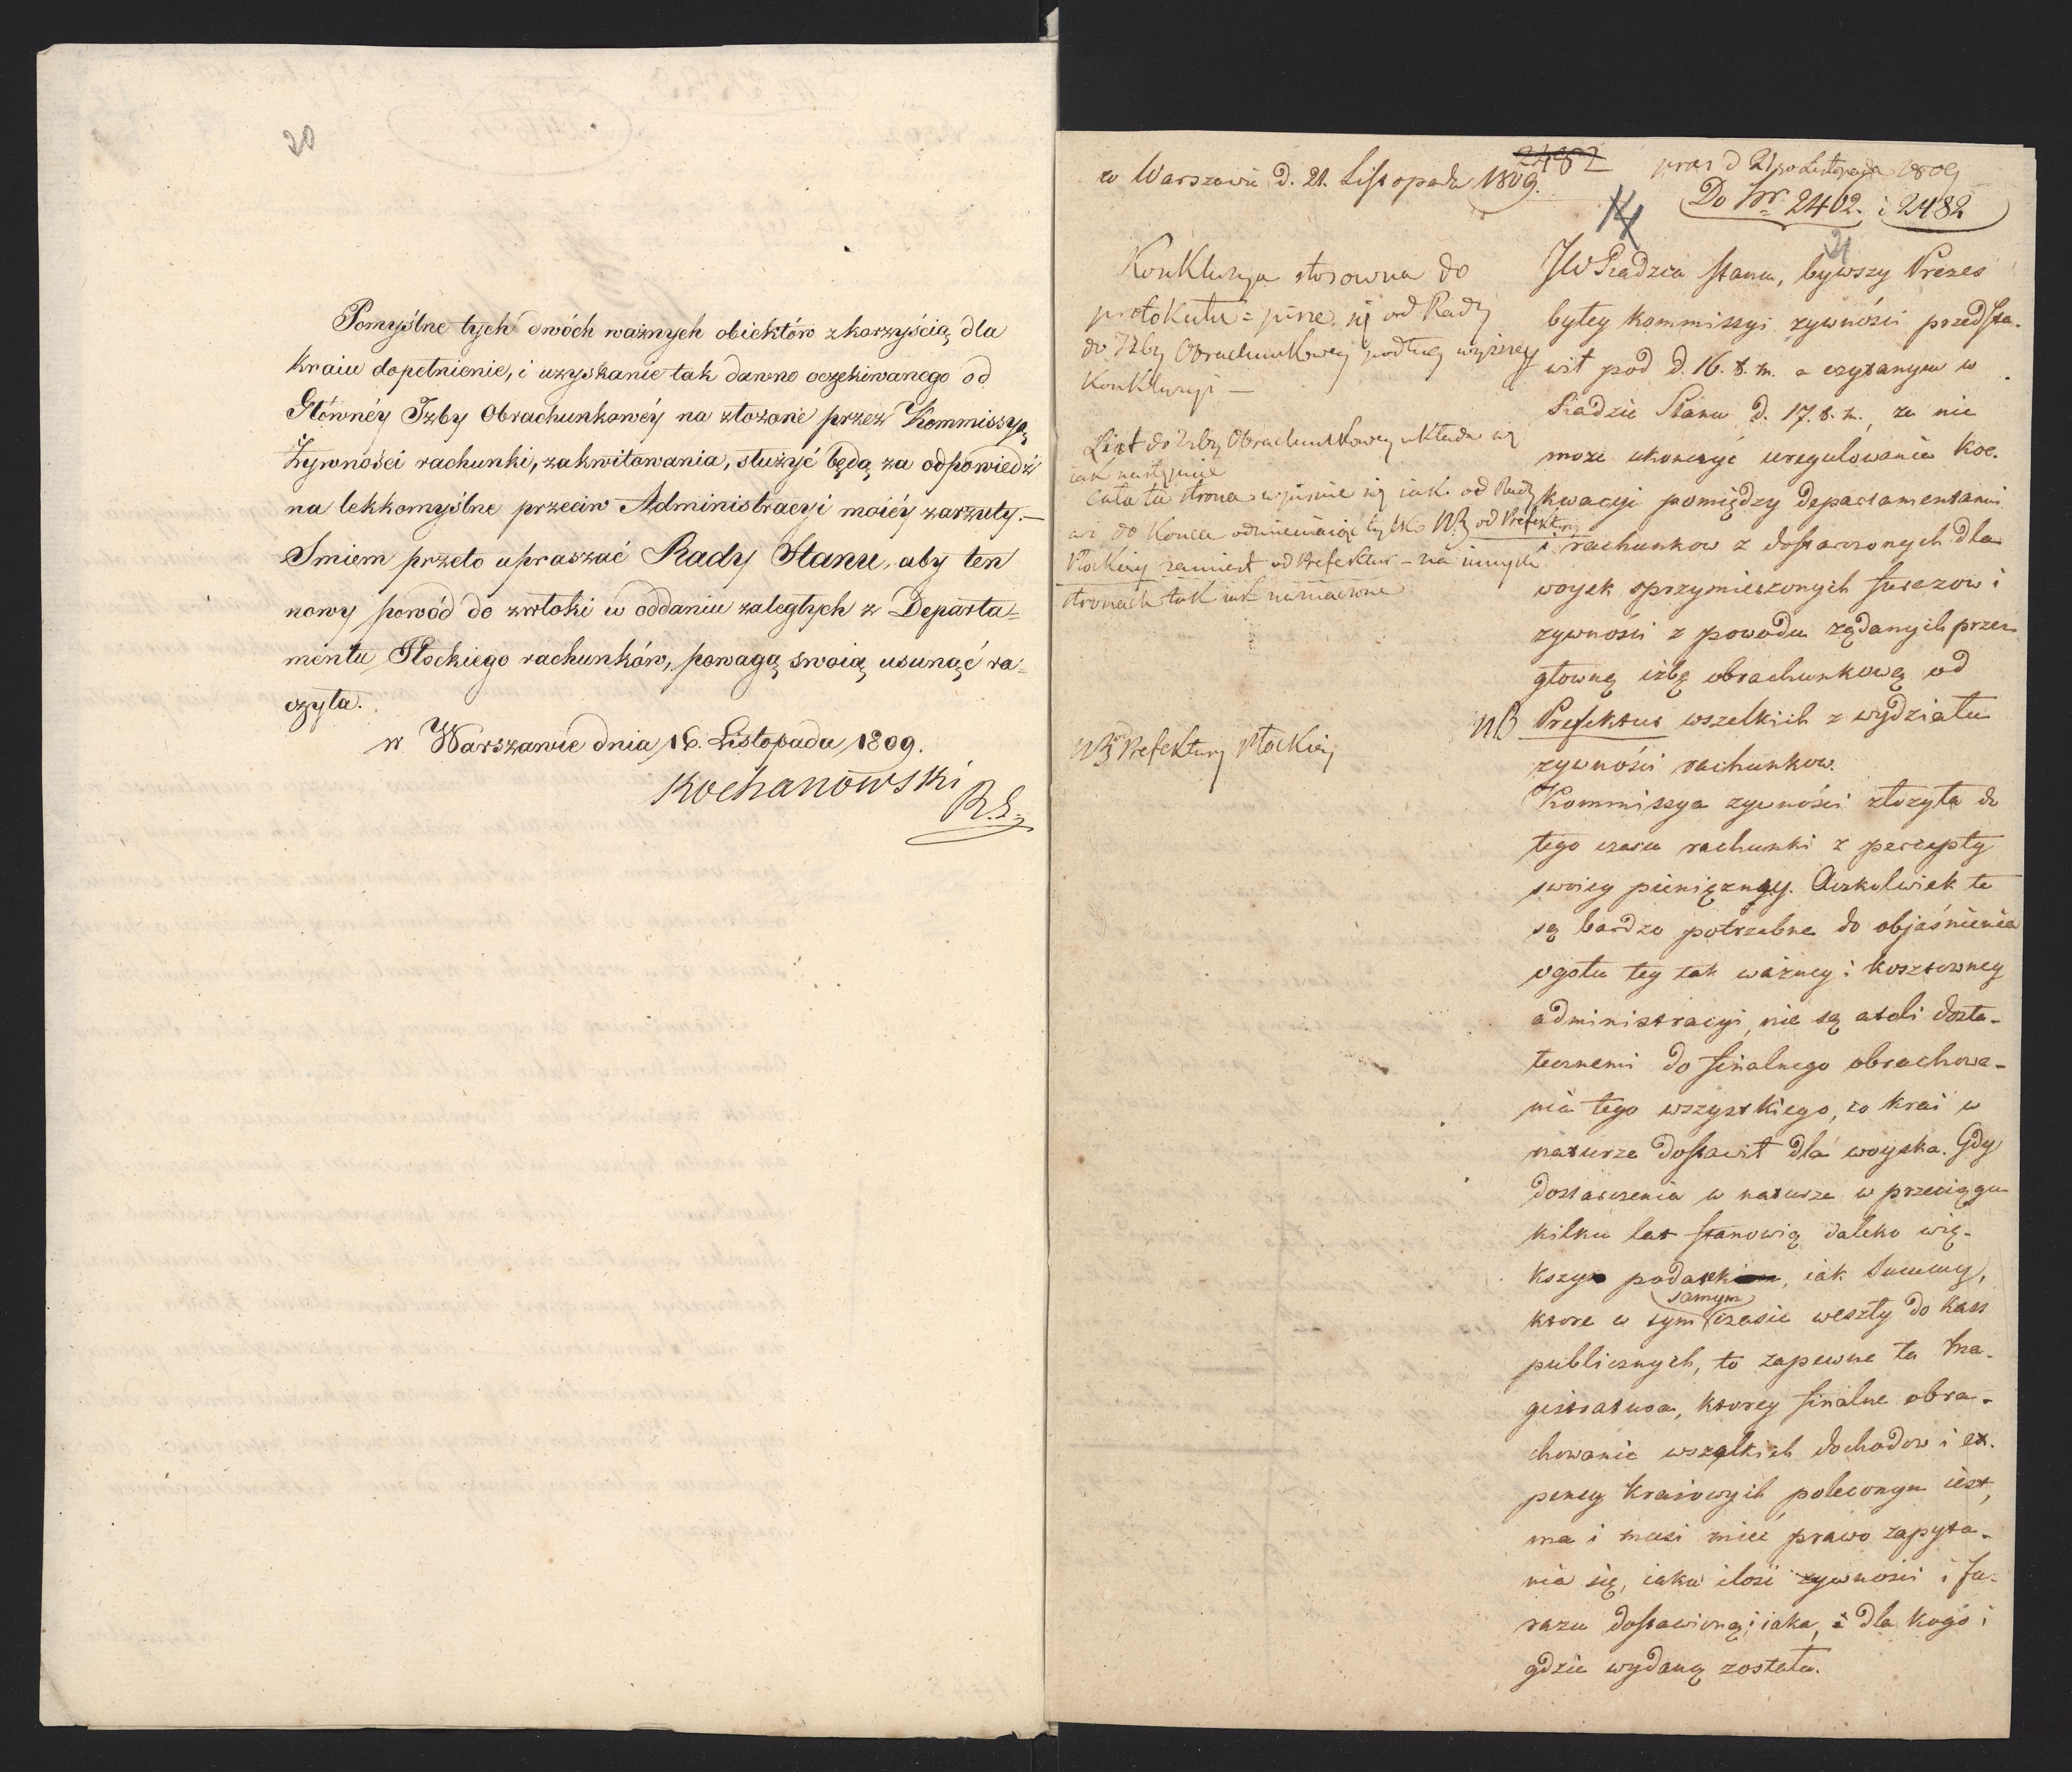 20
Pomyślne tych dwóch ważnych obiektów z korzyścią dla
kraiu dopełnienie, i uzyskanie tak dawno oczekiwanego od
Głównéy Izby Obrachunkowéy na złożone przez Kommissyą
Żywności rachunki, zakwitowania, służyć będą za odpowiedź
na lekkomyślne przeciw Administracyi moiéy zarzuty.—
Smiem przeto upraszać Rady Stanu, aby ten
nowy powód do zwłoki w oddaniu zaległych z Departa=
mentu Płockiego rachunków, powagą swoią usunąć ra=
czyła.
w Warszawie dnia 16. Listopada 1809.
Kochanowski
R. S.
w Warszawie D. 21. Listopada 1809.
2482
praes D 21go Listopada 1809
Do Nr. 2402. i 2482
14
21
Konkluzya stosowna do
protokułu = pisze się od Rady
do Izby Obrachunkowey podług wyższey
Konkluzyi —
List do Izby Obrachunkowey układa się
iak następuie
Cała ta strona wpisuie się iak od Rady
aż do Konca odmieniaiąc tylko NB od Prefektury
Płockiey zamiast od Prefektur – na innych
stronach tak iak naznaczone
NB od Prefektury Płockiey
JW Radzca Stanu, bywszy Prezes
byłey Kommissyi żywności przedsta-
wił pod d. 16. t. m. a czytanym w
Radzie Stanu d. 17. t. m., że nie
może ukonczyć uregulowania Koe-
kwacyi pomiędzy Departamentami
i rachunkow z dostarczonych dla
woysk sprzymierzonych furażow i
żywności z powodu żądanych przez
głowną izbę obrachunkową od
NB Prefektur wszelkich z wydziału
żywności rachunkow.
Kommissya żywności złożyła do
tego czasu rachunki z percepty
swoiey pieniężney. Aczkolwiek te
są bardzo potrzebne do objaśnienia
ogołu tey tak ważney i kosztowney
administracyi, nie są atoli dosta-
tecznemi do finalnego obrachowa-
nia tego wszystkiego, co kray w
naturze dostawił dla woyska. Gdy
dostarczenia w naturze w przeciągu
kilku lat stanowią daleko wię-
kszy podatek, iak Summy,
samym
ktore w tym czasie weszły do kass
publicznych, to zapewne ta Ma-
gistratura, ktorey finalne obra-
chowanie wszelkich dochodow i ex-
pensy kraiowych polecongm iest,
ma i musi mieć prawo zapyta-
nia się, iaka ilość żywności i fu-
razu dostawioną i iaka, i dla kogo i
gdzie wydaną została.